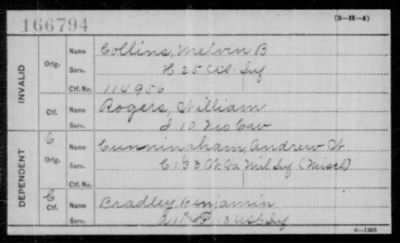 166794
(3-H-4)
INVALID
Orig. Name Collins, Melvin B
Serv. H 25 US Inf
Ctf. No. 114956
Ctf. Name Rogers, William
Serv. I 10 Mo Cav
DEPENDENT
C
Orig. Name Cunningham, Andrew
Serv. C 133 Mil Inf
C
Ctf. Name Bradley, Benjamin
Serv. 13 US Inf